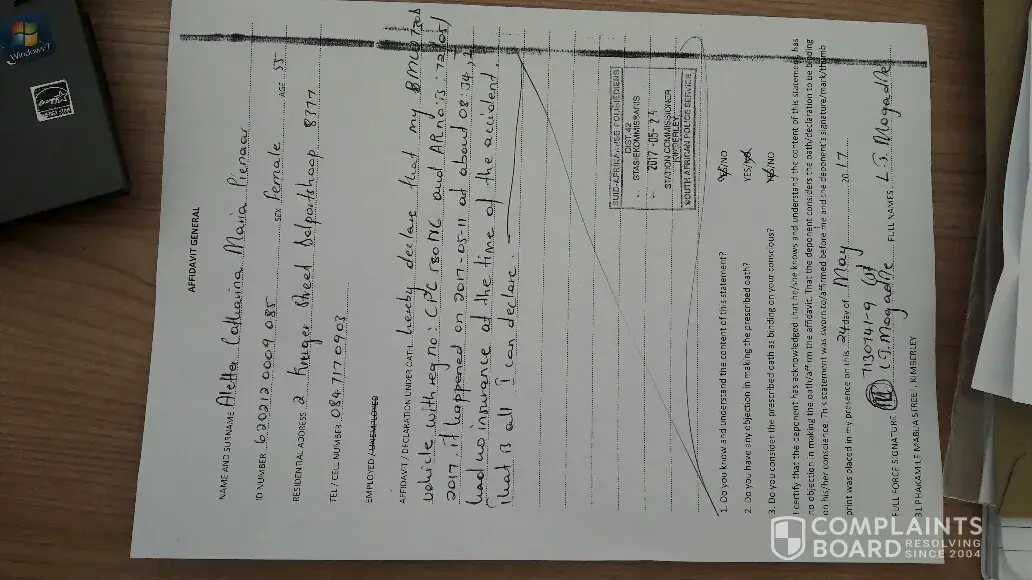 AFFIDAVIT GENERAL
NAME AND SURNAME Aletta Catharina Maria Pienaar
ID NUMBER 620212 0009 085 SEX female AGE 55
RESIDENTIAL ADDRESS 2 Kruger Street Delportshoop 8377
TEL / CELL NUMBER 084 717 0903
EMPLOYED / UNEMPLOYED
AFFIDAVIT / DECLARATION UNDER OATH hereby declare that my BMW
vehicle with reg no: and AR no is:
2017. it happened on 2017-05-11 at about 08:34,
had no insurance at the time of the accident.
that is all I can declare.
SUID-AFRIKAANSE POLISIEDIENS
DIST. 42
STASIEKOMMISSARIS
2017 -05- 24
STATION COMMISSIONER
KIMBERLEY
SOUTH AFRICAN POLICE SERVICE
1. Do you know and understand the content of this statement? YES/NO
2. Do you have any objection in making the prescribed oath? YES/NO
3. Do you consider the prescribed oath as binding on your conscious? YES/NO
I certify that the deponent has acknowledged that he/she knows and understand the content of this statement, has
no objection in making the oath/affirm the affidavit. That the deponent considers the oath/declaration to be binding
on his/her conscience. This statement was sworn to/affirmed before me and the deponent's signature/mark/thumb
print was placed in my presence on this 24 day of May 2017
7130741-9
FULL FORCE SIGNATURE FULL NAMES
31 PHAKAMILE MABIJA STREET, KIMBERLEY
Windows 7
COMPLAINTS
BOARD RESOLVING
SINCE 2004